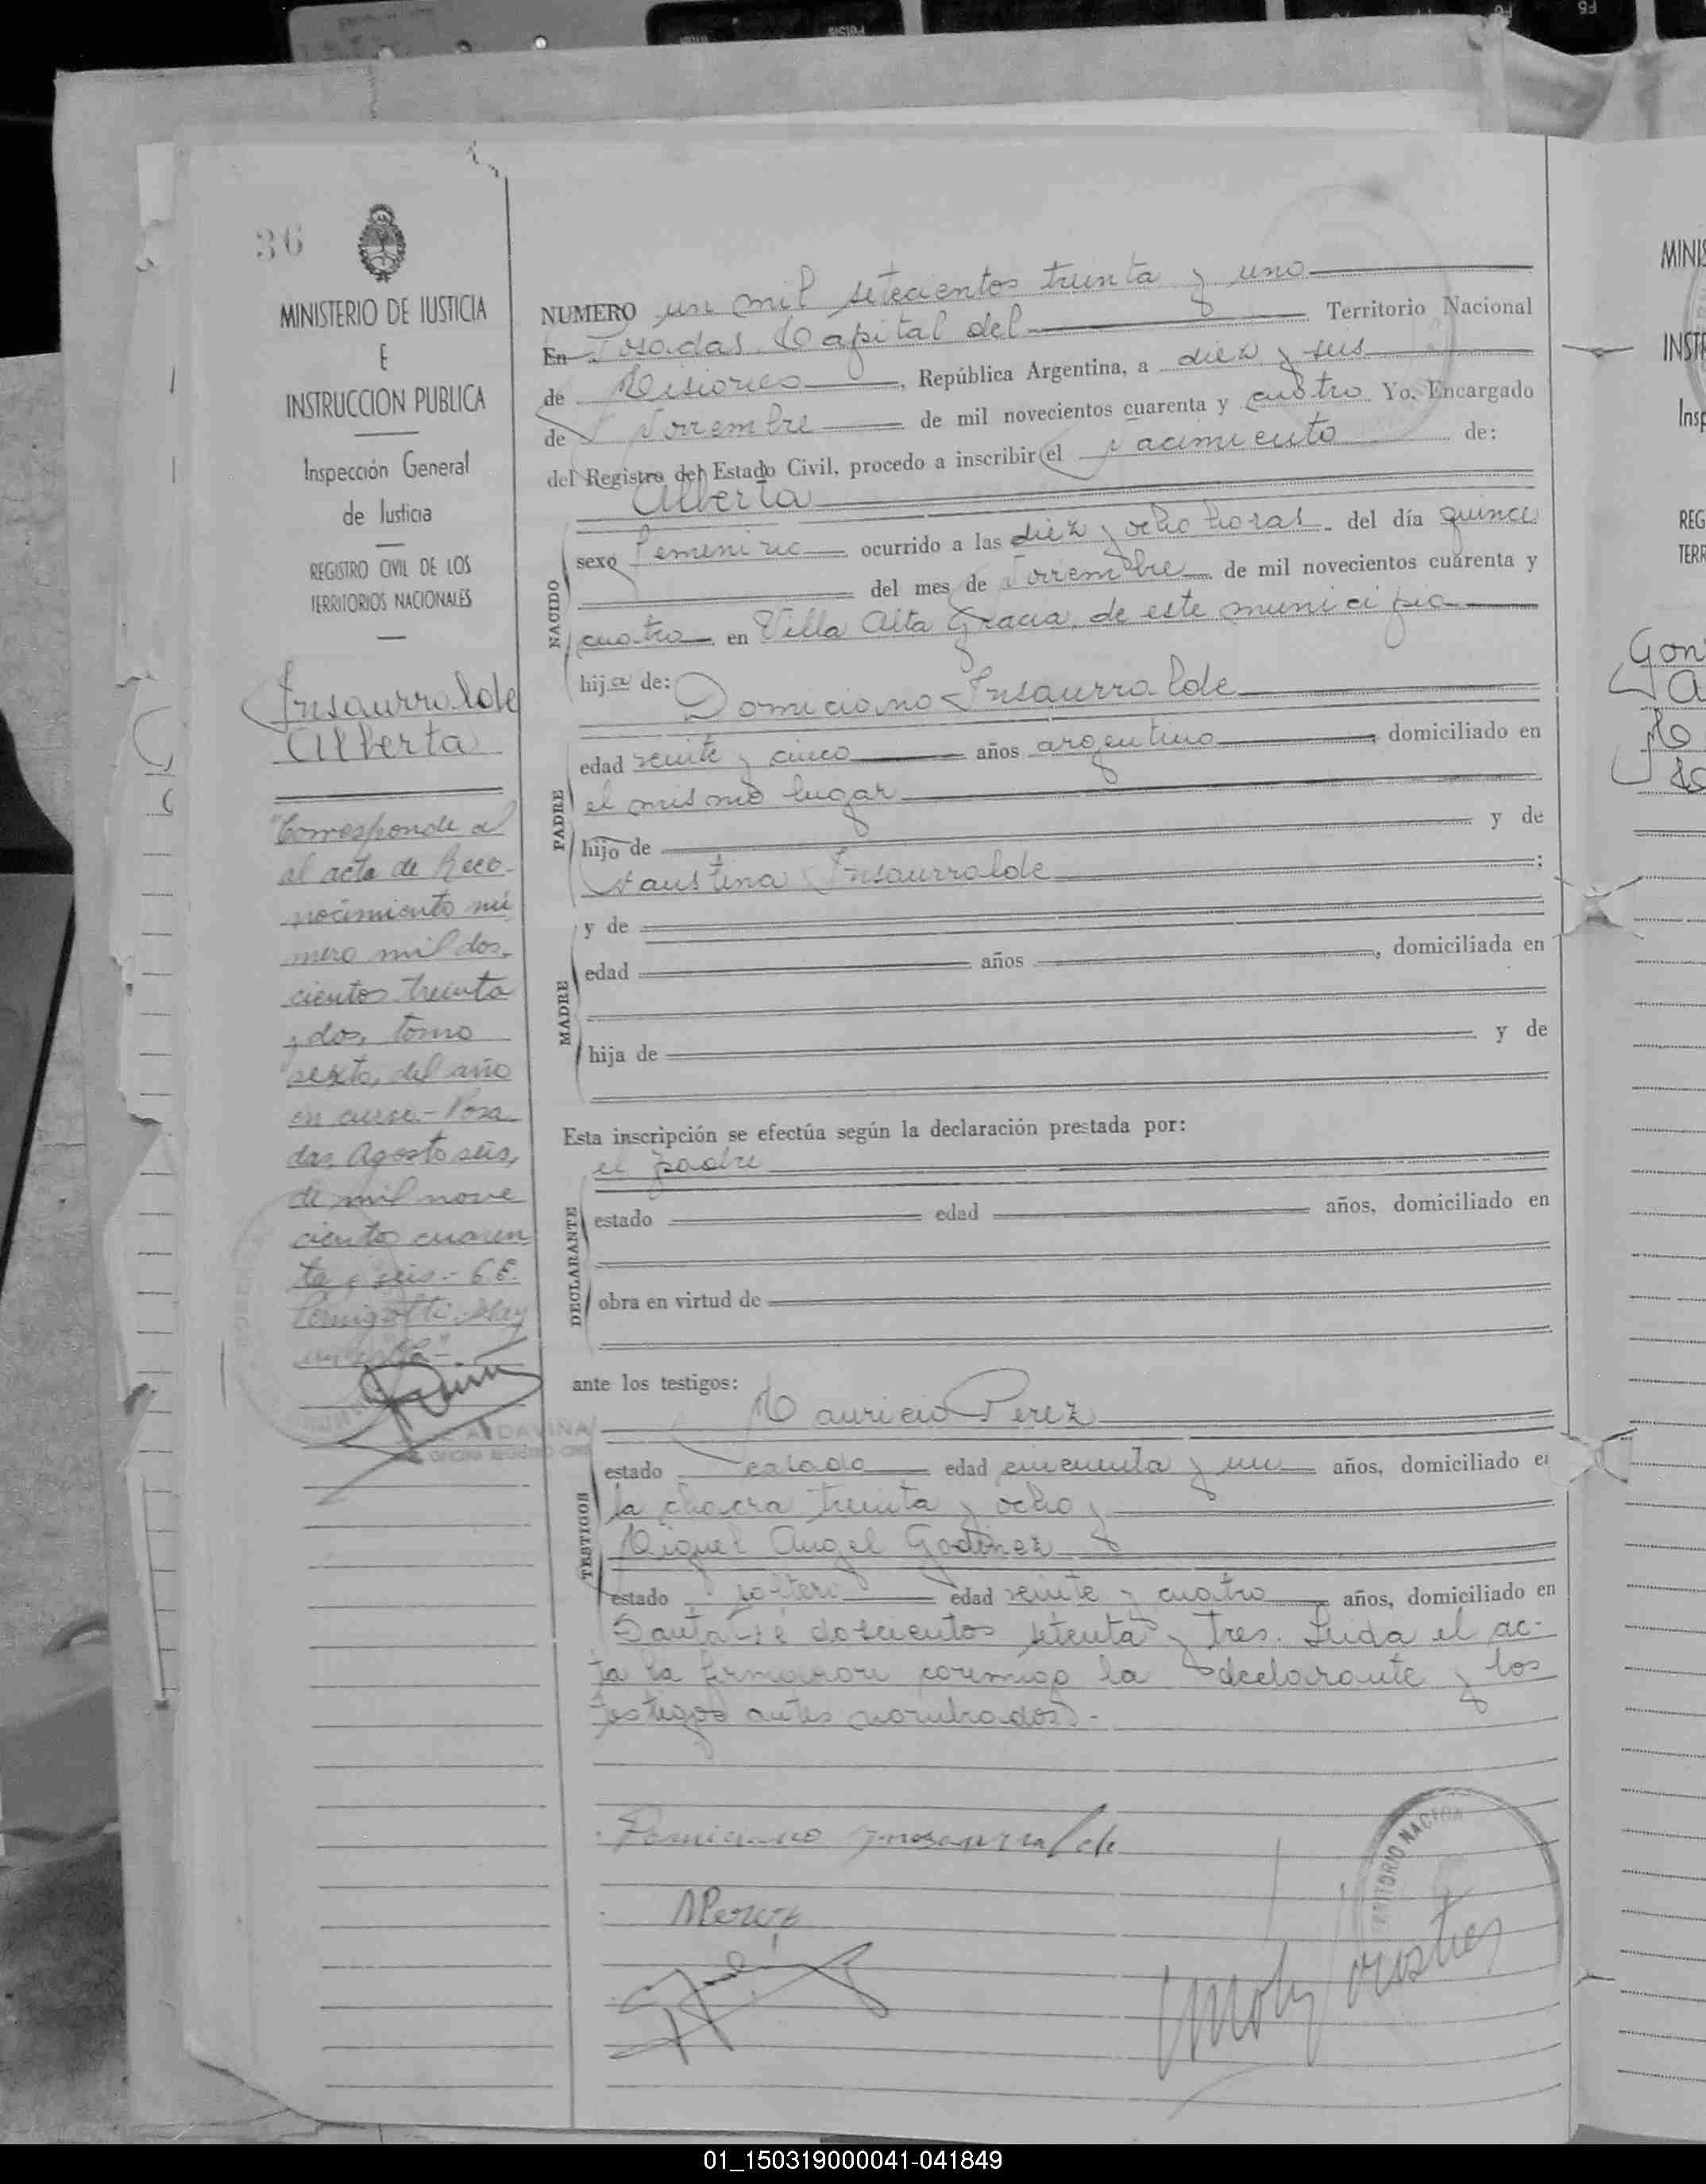 36
MINISTERIO DE JUSTICIA
E
INSTRUCCION PUBLICA
Inspección General
de Justicia
REGISTRO CIVIL DE LOS
TERRITORIOS NACIONALES
Insaurralde
Alberta
"Corresponde al
al acta de Reco-
nocimiento nú
mero mil dos-
cientos treinta
y dos, tomo
sexto, del año
en curso.- Posa
das, Agosto seis,
de mil nove
ciento cuaren
ta y seis.-
NUMERO un mil setecientos treinta y uno
En Posadas, Capital del Territorio Nacional
de Misiones, República Argentina, a diez y seis
de Noviembre de mil novecientos cuarenta y cuatro Yo, Encargado
del Registro del Estado Civil, procedo a inscribir el nacimiento de:
Alberta
NACIDO
sexo femenino ocurrido a las diez y ocho horas del día quince
del mes de Noviembre de mil novecientos cuarenta y
cuatro en Villa Alta Gracia, de este municipio
hija de: Domiciano Insaurralde
PADRE
edad veinte y cinco años argentino, domiciliado en
el mismo lugar
hijo de y de
Faustina Insaurralde;
MADRE
y de
edad años, domiciliada en
hija de y de
Esta inscripción se efectúa según la declaración prestada por:
el padre
DECLARANTE
estado edad años, domiciliado en
obra en virtud de
ante los testigos:
Mauricio Perez
TESTIGOS
estado casado edad cincuenta y un años, domiciliado en
la chacra treinta y ocho y
Miguel Angel Godinez
estado soltero edad veinte y cuatro años, domiciliado en
Santa Fé doscientos setenta y tres. Leida el ac-
ta la firmaron conmigo la declarante y los
testigos antes nombrados.-
Domiciano Insaurralde
MPerez
TERRITORIO NACION
MINIS
INSTR
Insp
REG
TERR
Gon
01_150319000041-041849